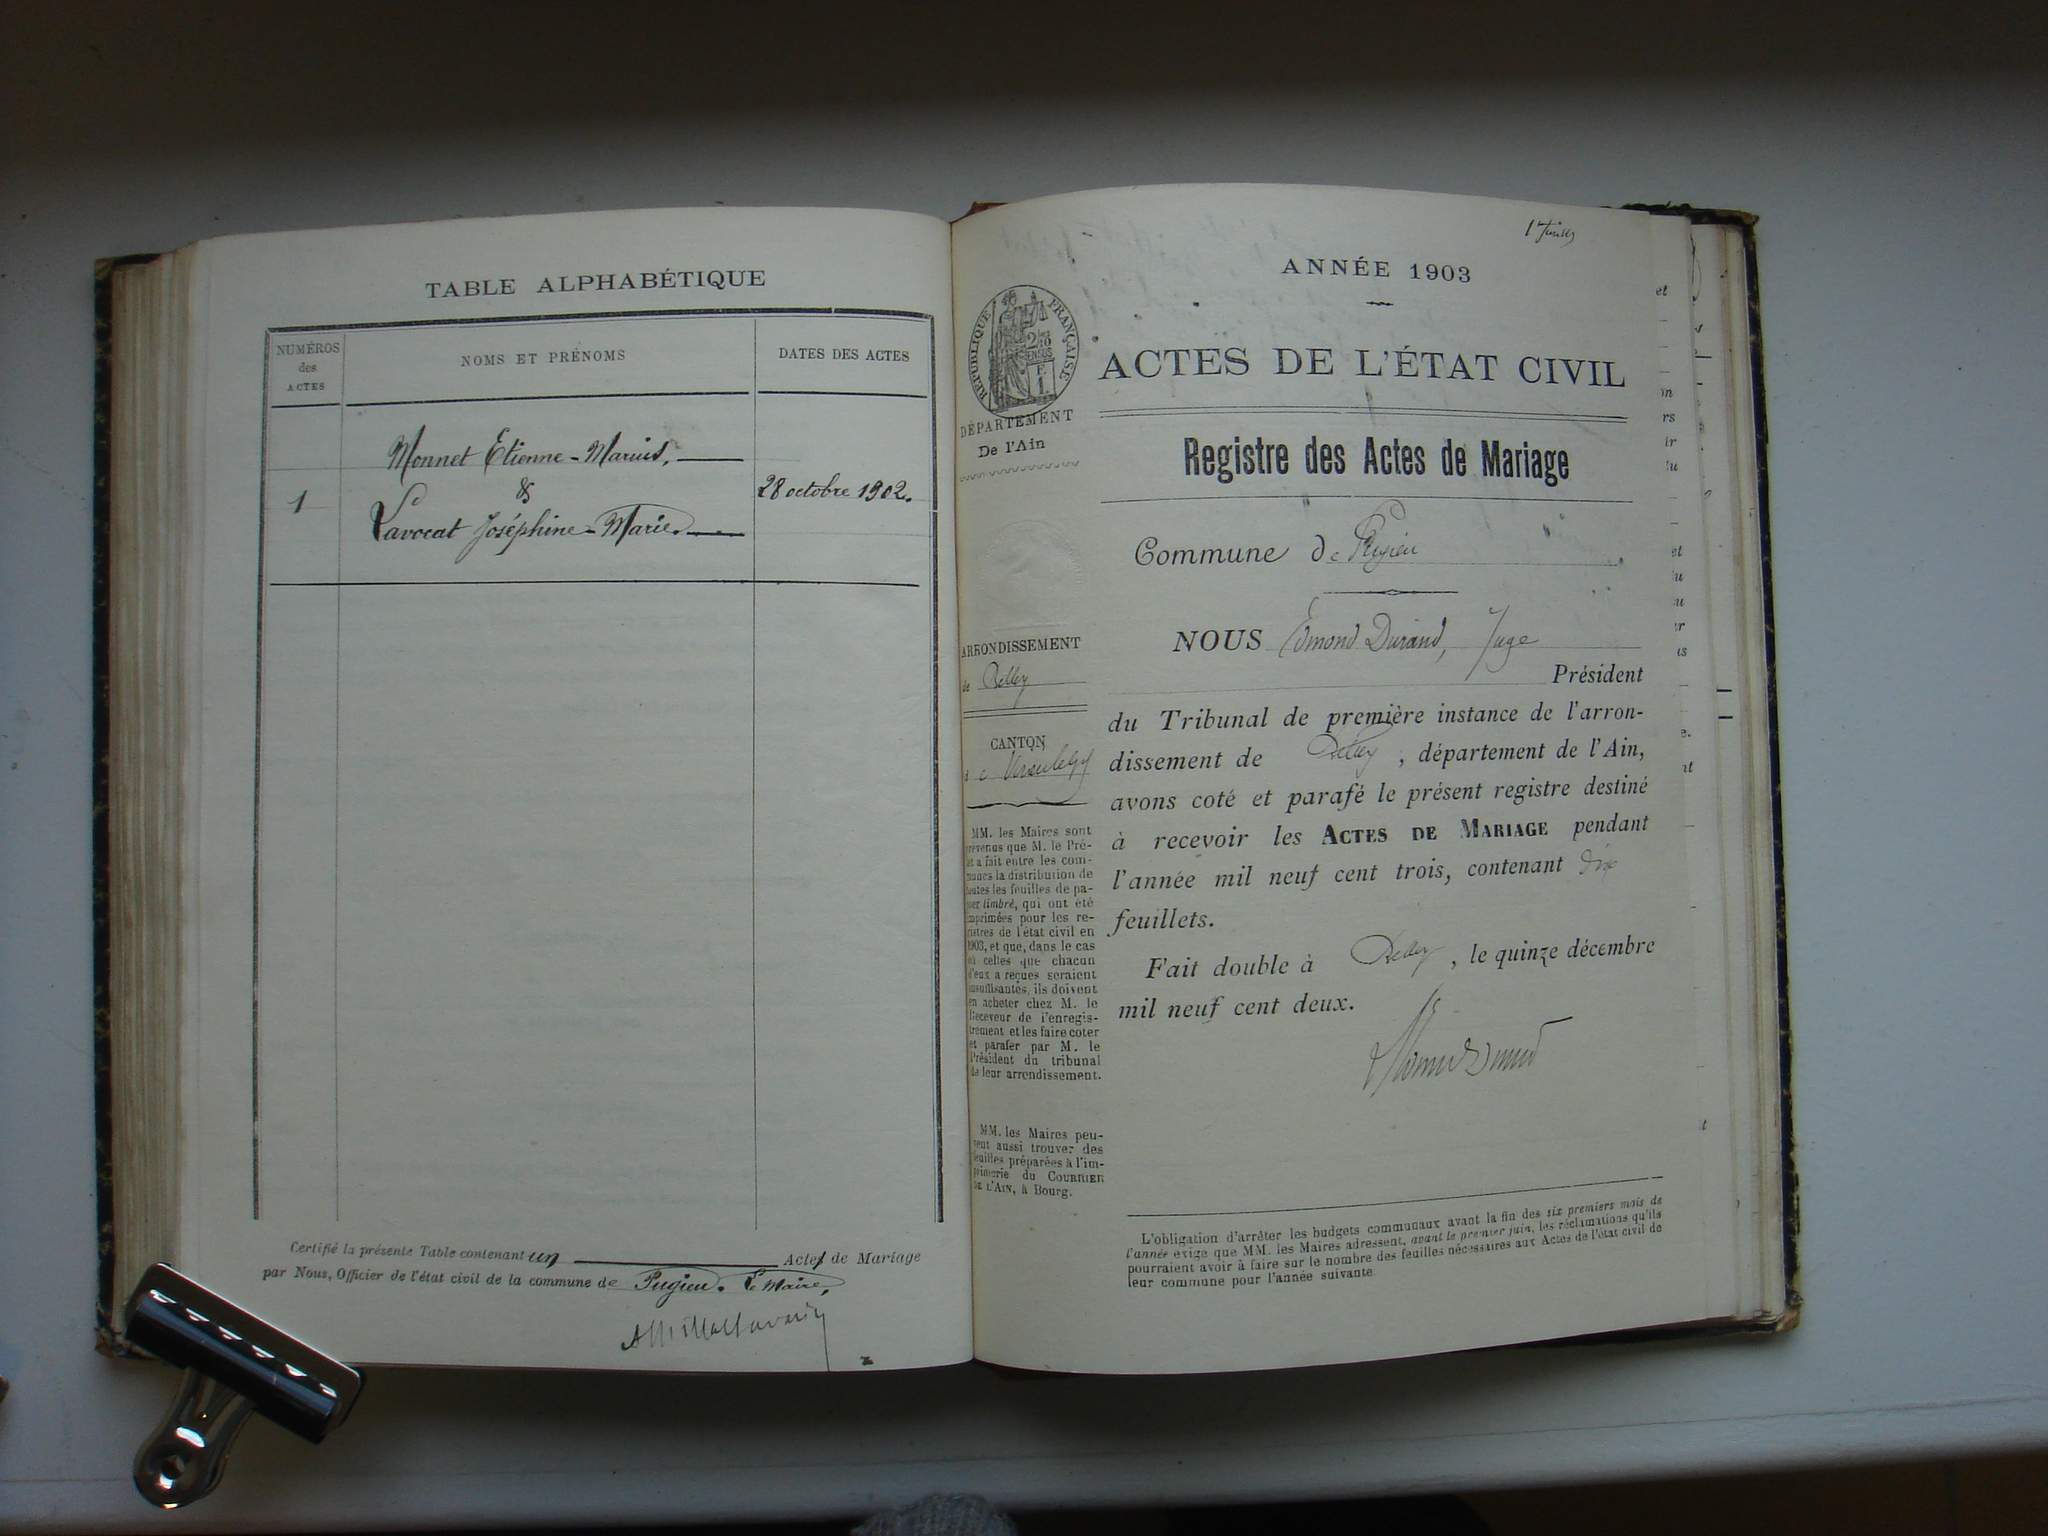 TABLE ALPHABÉTIQUE
NUMÉROS
des
ACTES
NOMS ET PRÉNOMS
DATES DES ACTES
Monnet Etienne-Marius.
&
1
28 octobre 1902.
Lavocat Joséphine-Marie.
Certifié la présente Table contenant un Actes de Mariage
par Nous, Officier de l'état civil de la commune de Pugieu. Le Maire,
ANNÉE 1903
RÉPUBLIQUE FRANÇAISE
ACTES DE L'ÉTAT CIVIL
DÉPARTEMENT
De l'Ain
Registre des Actes de Mariage
Commune de Pugieu
NOUS Edmond Durand, Juge
Président
du Tribunal de première instance de l'arron-
dissement de Belley, département de l'Ain,
avons coté et parafé le présent registre destiné
à recevoir les ACTES DE MARIAGE pendant
l'année mil neuf cent trois, contenant dix
feuillets.
Fait double à Belley, le quinze décembre
mil neuf cent deux.
ARRONDISSEMENT
de Belley
CANTON
de
MM. les Maires sont
prévenus que M. le Pré-
fet a fait entre les com-
munes la distribution de
toutes les feuilles de pa-
pier timbré, qui ont été
imprimées pour les re-
gistres de l'état civil en
1903, et que, dans le cas
où celles que chacun
d'eux a reçues seraient
insuffisantes, ils doivent
en acheter chez M. le
Receveur de l'enregis-
trement et les faire coter
et parafer par M. le
Président du tribunal
de leur arrondissement.
MM. les Maires peu-
vent aussi trouver des
feuilles préparées à l'im-
primerie du COURRIER
DE L'AIN, à Bourg.
L'obligation d'arrêter les budgets communaux avant la fin des six premiers mois de
l'année exige que MM. les Maires adressent, avant le premier juin, les réclamations qu'ils
pourraient avoir à faire sur le nombre des feuilles nécessaires aux Actes de l'état civil de
leur commune pour l'année suivante.